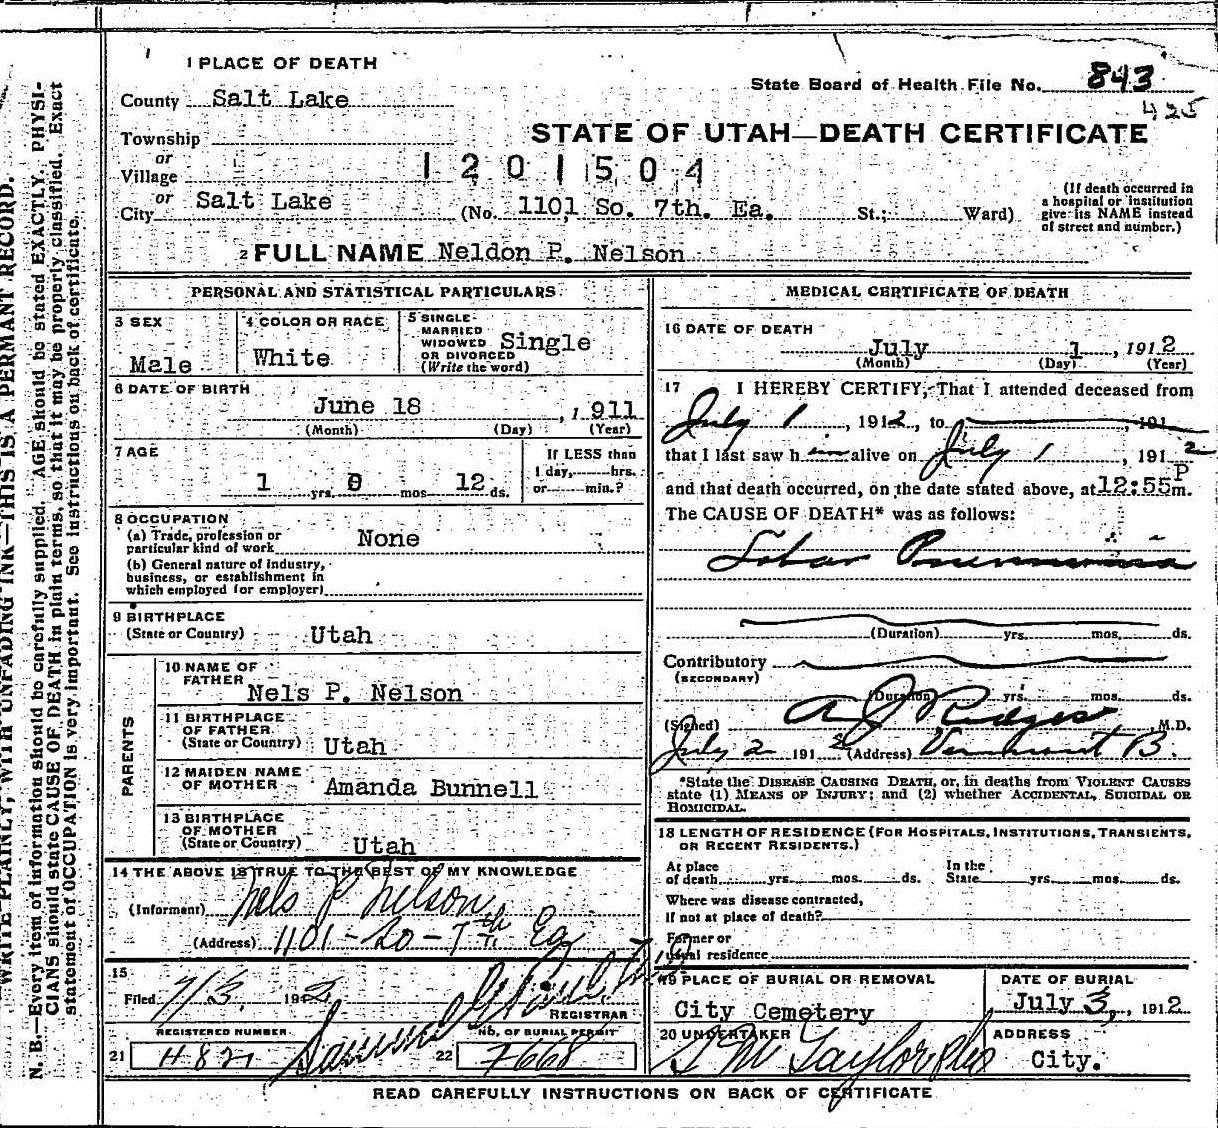 1 PLACE OF DEATH
State Board of Health File No. 843
425
County Salt Lake
STATE OF UTAH—DEATH CERTIFICATE
Township
or
Village
1201504
or
City Salt Lake (No. 1101 So. 7th. Ea. St.; Ward)
(If death occurred in
a hospital or institution
give its NAME instead
of street and number.)
2 FULL NAME Neldon P. Nelson
PERSONAL AND STATISTICAL PARTICULARS
3 SEX
Male
4 COLOR OR RACE
White
5 SINGLE
MARRIED
WIDOWED
OR DIVORCED
(Write the word)
Single
6 DATE OF BIRTH
June 18, 1911
(Month) (Day) (Year)
7 AGE
1 yrs. 0 mos 12 ds.
If LESS than
1 day, hrs.
or min.?
8 OCCUPATION
(a) Trade, profession or
particular kind of work None
(b) General nature of industry,
business, or establishment in
which employed (or employer)
9 BIRTHPLACE
(State or Country) Utah
PARENTS
10 NAME OF
FATHER Nels P. Nelson
11 BIRTHPLACE
OF FATHER
(State or Country) Utah
12 MAIDEN NAME
OF MOTHER Amanda Bunnell
13 BIRTHPLACE
OF MOTHER
(State or Country) Utah
14 THE ABOVE IS TRUE TO THE BEST OF MY KNOWLEDGE
(Informant) Nels P Nelson
(Address) 1101-So-7th Ea
15
Filed 7/3 1912
REGISTRAR
REGISTERED NUMBER
21 H821
NO. OF BURIAL PERMIT
22 7668
MEDICAL CERTIFICATE OF DEATH
16 DATE OF DEATH
July 1, 1912
(Month) (Day) (Year)
17 I HEREBY CERTIFY, That I attended deceased from
July 1, 1912, to , 191
that I last saw h im alive on July 1, 1912
and that death occurred, on the date stated above, at 12:55 P m.
The CAUSE OF DEATH* was as follows:
Lobar Pneumonia
(Duration) yrs. mos. ds.
Contributory
(SECONDARY)
(Duration) yrs. mos. ds.
(Signed) A J Ridges M.D.
July 2 1912 (Address) Vermont B.
*State the DISEASE CAUSING DEATH, or, in deaths from VIOLENT CAUSES
state (1) MEANS OF INJURY; and (2) whether ACCIDENTAL, SUICIDAL OR
HOMICIDAL.
18 LENGTH OF RESIDENCE (FOR HOSPITALS, INSTITUTIONS, TRANSIENTS,
OR RECENT RESIDENTS.)
At place
of death yrs. mos. ds.
In the
State yrs. mos. ds.
Where was disease contracted,
if not at place of death?
Former or
usual residence
19 PLACE OF BURIAL OR REMOVAL
City Cemetery
DATE OF BURIAL
July 3, 1912
20 UNDERTAKER
ADDRESS
City.
READ CAREFULLY INSTRUCTIONS ON BACK OF CERTIFICATE
WRITE PLAINLY, WITH UNFADING INK—THIS IS A PERMANT RECORD.
N. B.—Every item of information should be carefully supplied. AGE should be stated EXACTLY. PHYSI-
CIANS should state CAUSE OF DEATH in plain terms, so that it may be properly classified. Exact
statement of OCCUPATION is very important. See instructions on back of certificate.